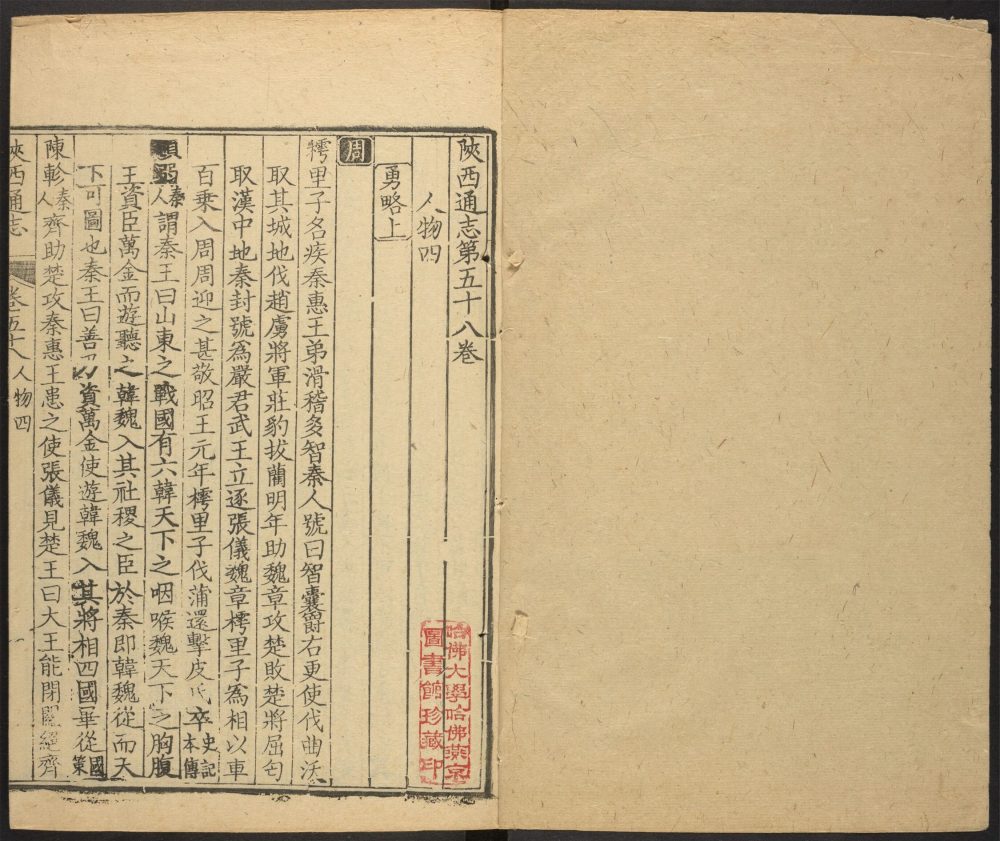 陝西通志第五十八卷
人物四
勇略上
周
樗里子名疾秦惠王弟滑稽多智秦人號曰智囊爵右更使伐曲沃
取其城地伐趙虜將軍莊豹拔藺明年助魏章攻楚敗楚將屈匄
取漢中地秦封號爲嚴君武王立逐張儀魏章樗里子爲相以車
百乗入周周迎之甚敬昭王元年樗里子伐蒲還擊皮氏卒史記本傳
頓弱秦人謂秦王曰山東之戰國有六韓天下之咽喉魏天下之胸腹
王資臣萬金而遊聽之韓魏入其社稷之臣於秦即韓魏從而天
下可圖也秦王曰善乃資萬金使遊韓魏入其將相四國畢從國策
陳軫秦人齊助楚攻秦惠王患之使張儀見楚王曰大王能閉關絕齊
陝西通志
卷五十八人物四
哈佛大學哈佛燕京
圖書館珍藏印